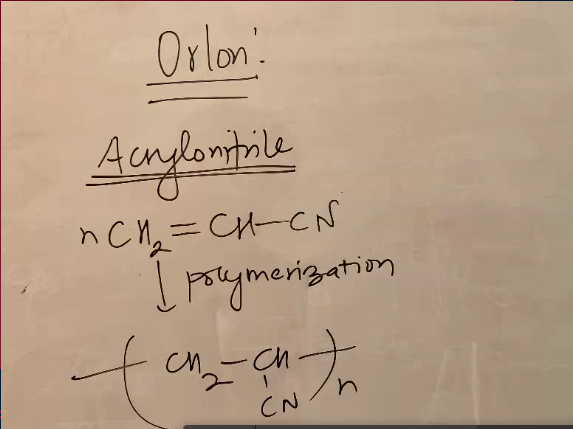 Orlon:
Acrylonitrile
nCH₂=CH-CN
↓ polymerization
-(CH₂-CH-)n
CN